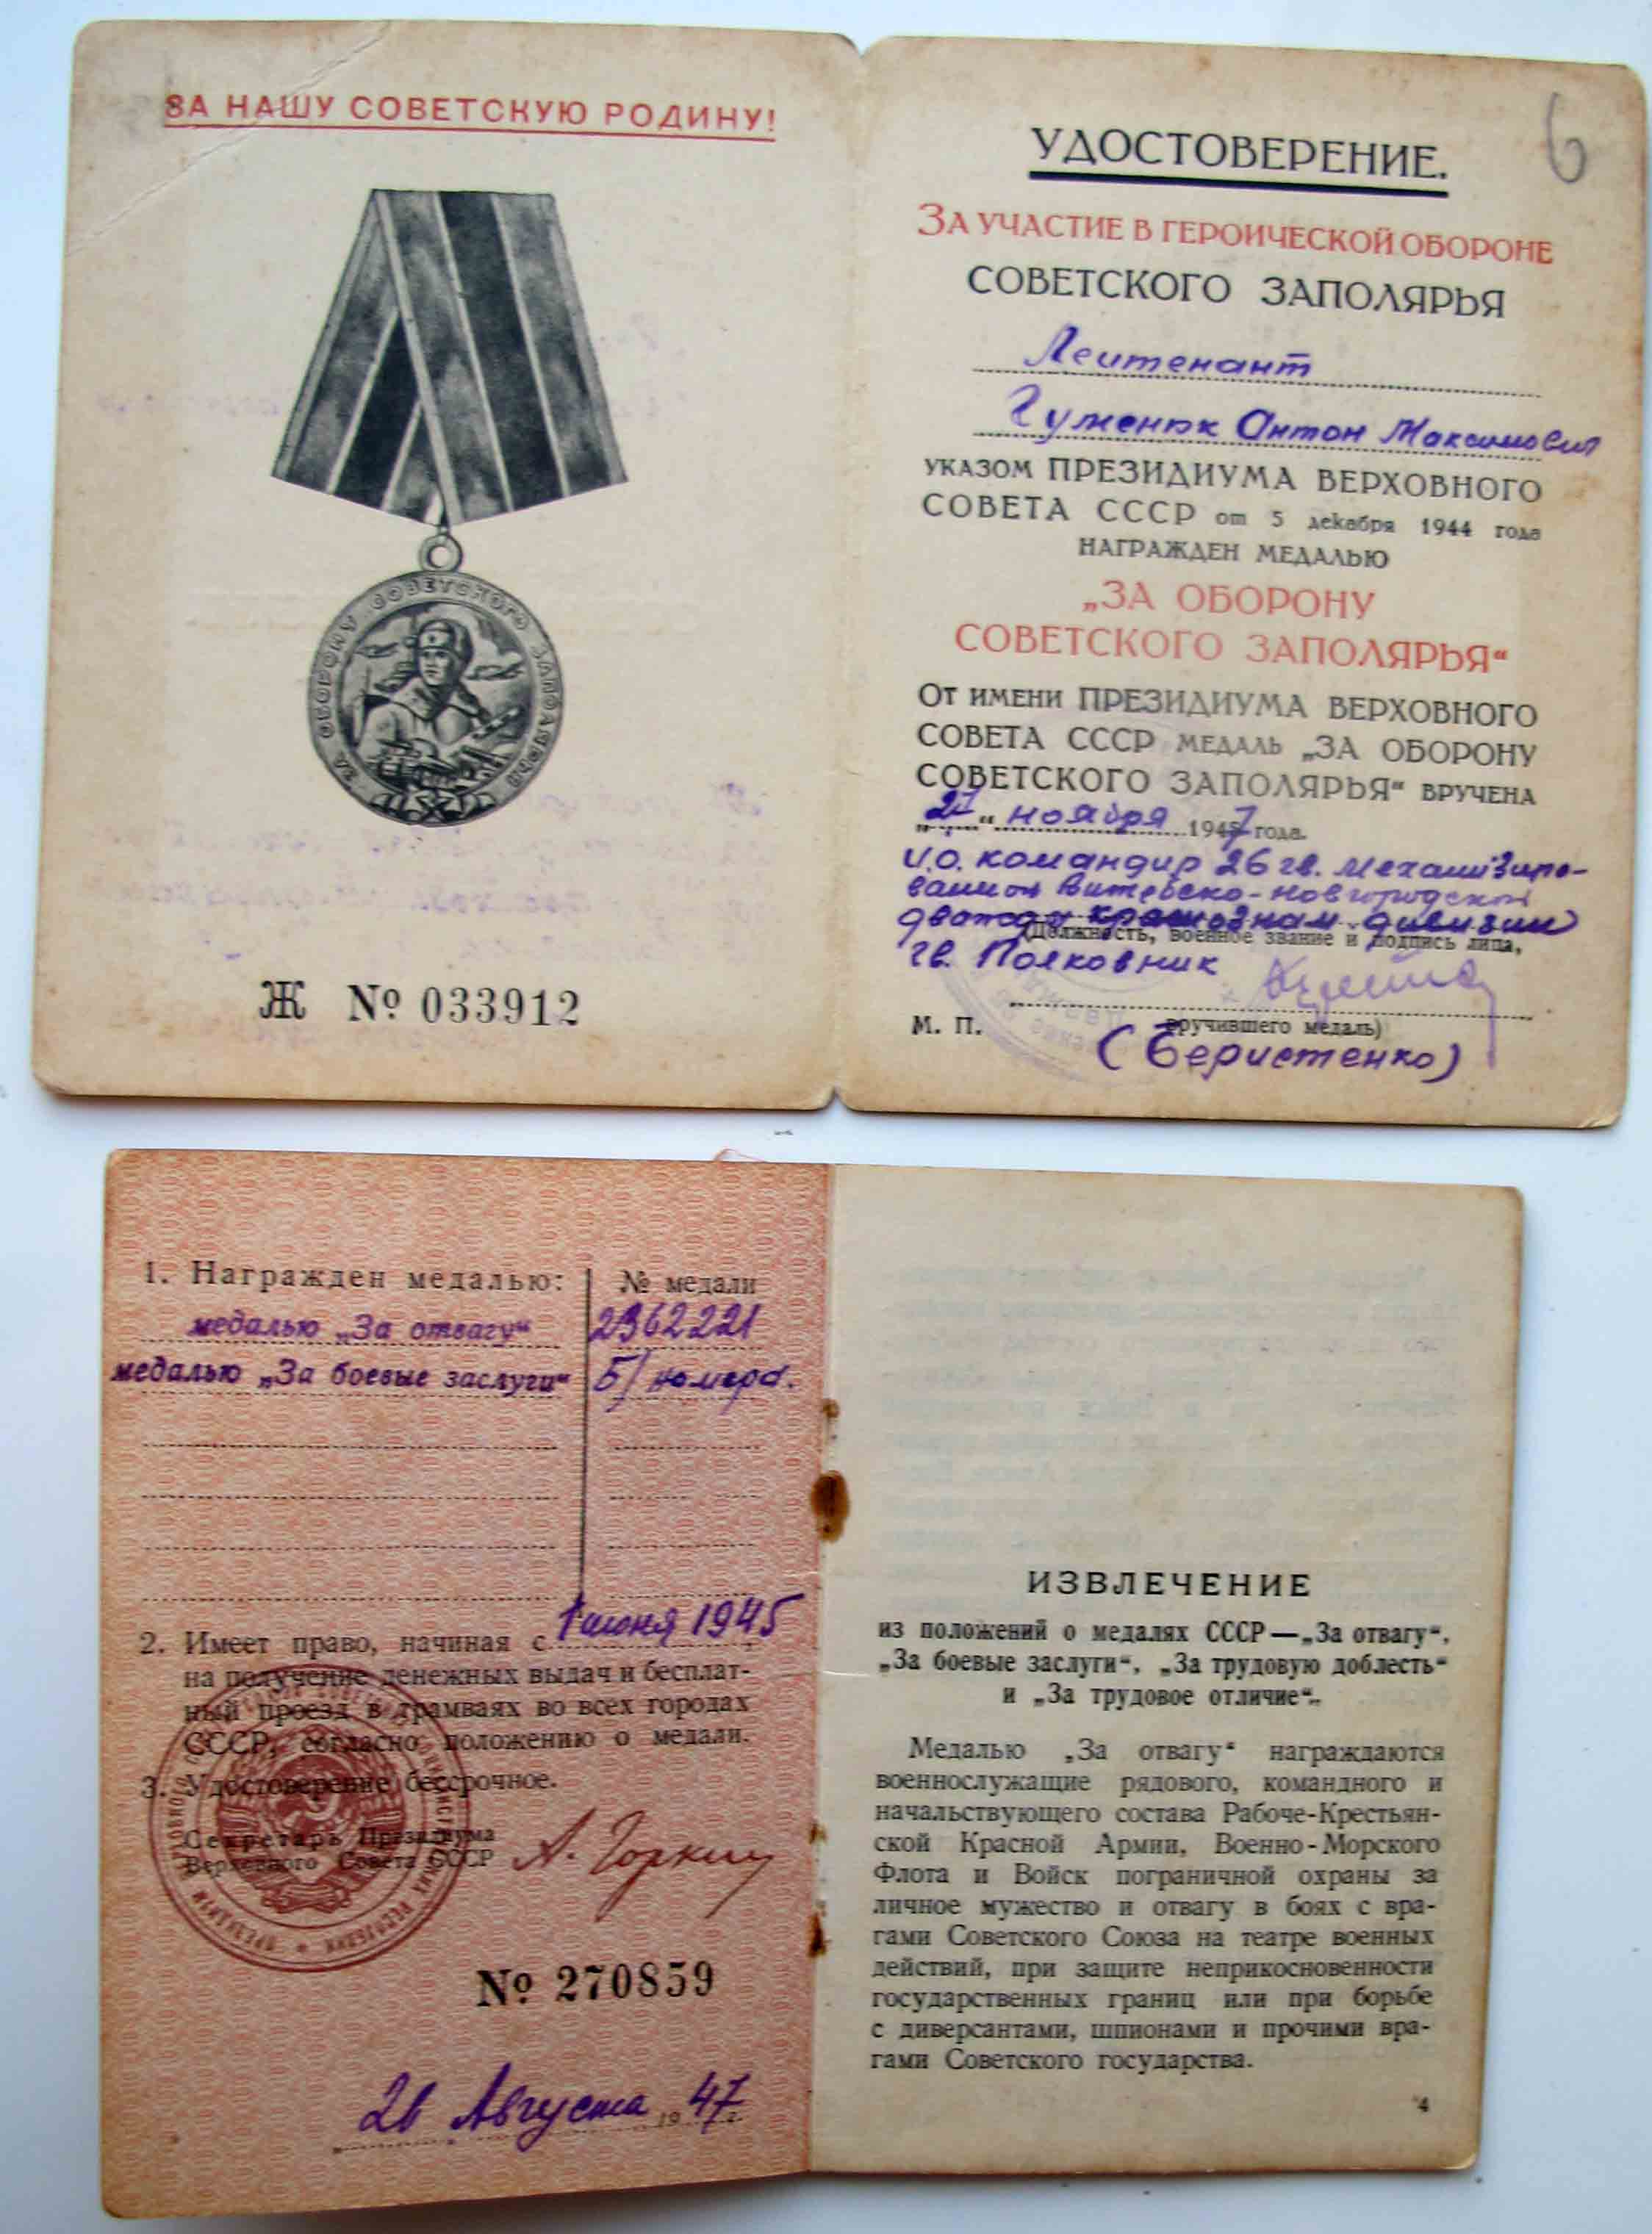 ЗА НАШУ СОВЕТСКУЮ РОДИНУ!
ЗА ОБОРОНУ СОВЕТСКОГО ЗАПОЛЯРЬЯ
Ж № 033912
6
УДОСТОВЕРЕНИЕ.
ЗА УЧАСТИЕ В ГЕРОИЧЕСКОЙ ОБОРОНЕ
СОВЕТСКОГО ЗАПОЛЯРЬЯ
Лейтенант
Гуменюк Антон Максимович
УКАЗОМ ПРЕЗИДИУМА ВЕРХОВНОГО
СОВЕТА СССР от 5 декабря 1944 года
НАГРАЖДЕН МЕДАЛЬЮ
„ЗА ОБОРОНУ
СОВЕТСКОГО ЗАПОЛЯРЬЯ“
ОТ ИМЕНИ ПРЕЗИДИУМА ВЕРХОВНОГО
СОВЕТА СССР МЕДАЛЬ „ЗА ОБОРОНУ
СОВЕТСКОГО ЗАПОЛЯРЬЯ“ ВРУЧЕНА
„27“ ноября 1947 года.
И.О. командир 26 гв. механизиро-
ванной Витебско-Новгородской
дважды краснознам. дивизии
(Должность, военное звание и подпись лица,
гв. Полковник
М. П. вручившего медаль)
(Беристенко)
1. Награжден медалью: № медали
медалью „За отвагу“ 2362221
медалью „За боевые заслуги“ Б/номера.
2. Имеет право, начиная с 1 июня 1945
на получение денежных выдач и бесплат-
ный проезд в трамваях во всех городах
СССР, согласно положению о медали.
3. Удостоверение бессрочное.
Секретарь Президиума
Верховного Совета СССР А. Горкин
№ 270859
26 Августа 1947 г.
ИЗВЛЕЧЕНИЕ
из положений о медалях СССР—„За отвагу“,
„За боевые заслуги“, „За трудовую доблесть“
и „За трудовое отличие“.
Медалью „За отвагу“ награждаются
военнослужащие рядового, командного и
начальствующего состава Рабоче-Крестьян-
ской Красной Армии, Военно-Морского
Флота и Войск пограничной охраны за
личное мужество и отвагу в боях с вра-
гами Советского Союза на театре военных
действий, при защите неприкосновенности
государственных границ или при борьбе
с диверсантами, шпионами и прочими вра-
гами Советского государства.
4